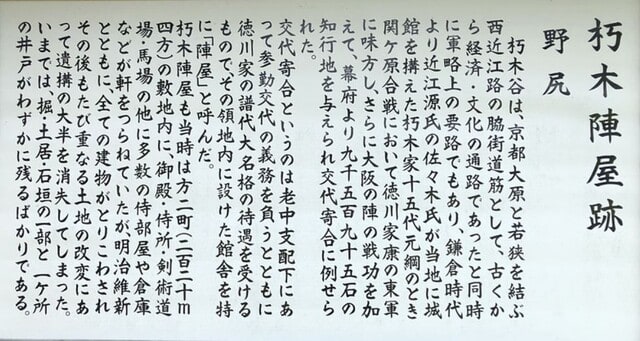 朽木陣屋跡
野尻
朽木谷は、京都大原と若狭を結ぶ
西近江路の脇街道筋として、古くか
ら経済・文化の通路であったと同時
に軍略上の要路でもあり、鎌倉時代
より近江源氏の佐々木氏が当地に城
館を構えた朽木家十五代元綱のとき
関ケ原合戦において徳川家康の東軍
に味方し、さらに大阪の陣の戦功を加
えて、幕府より九千五百九十五石の
知行地を与えられ交代寄合に例せら
れた。
交代寄合というのは老中支配下にあ
って参勤交代の義務を負うとともに
徳川家の譜代大名格の待遇を受ける
もので、その領地内に設けた館舎を特
に「陣屋」と呼んだ。
朽木陣屋も当時は方二町(二百二十m
四方)の敷地内に、御殿・侍所・剣術道
場・馬場の他に多数の侍部屋や倉庫
などが軒をつらねていたが明治維新
とともに、全ての建物がとりこわされ
その後もたび重なる土地の改変にあ
って遺構の大半を消失してしまった。
いまでは、掘・土居・石垣の一部と一ヶ所
の井戸がわずかに残るばかりである。